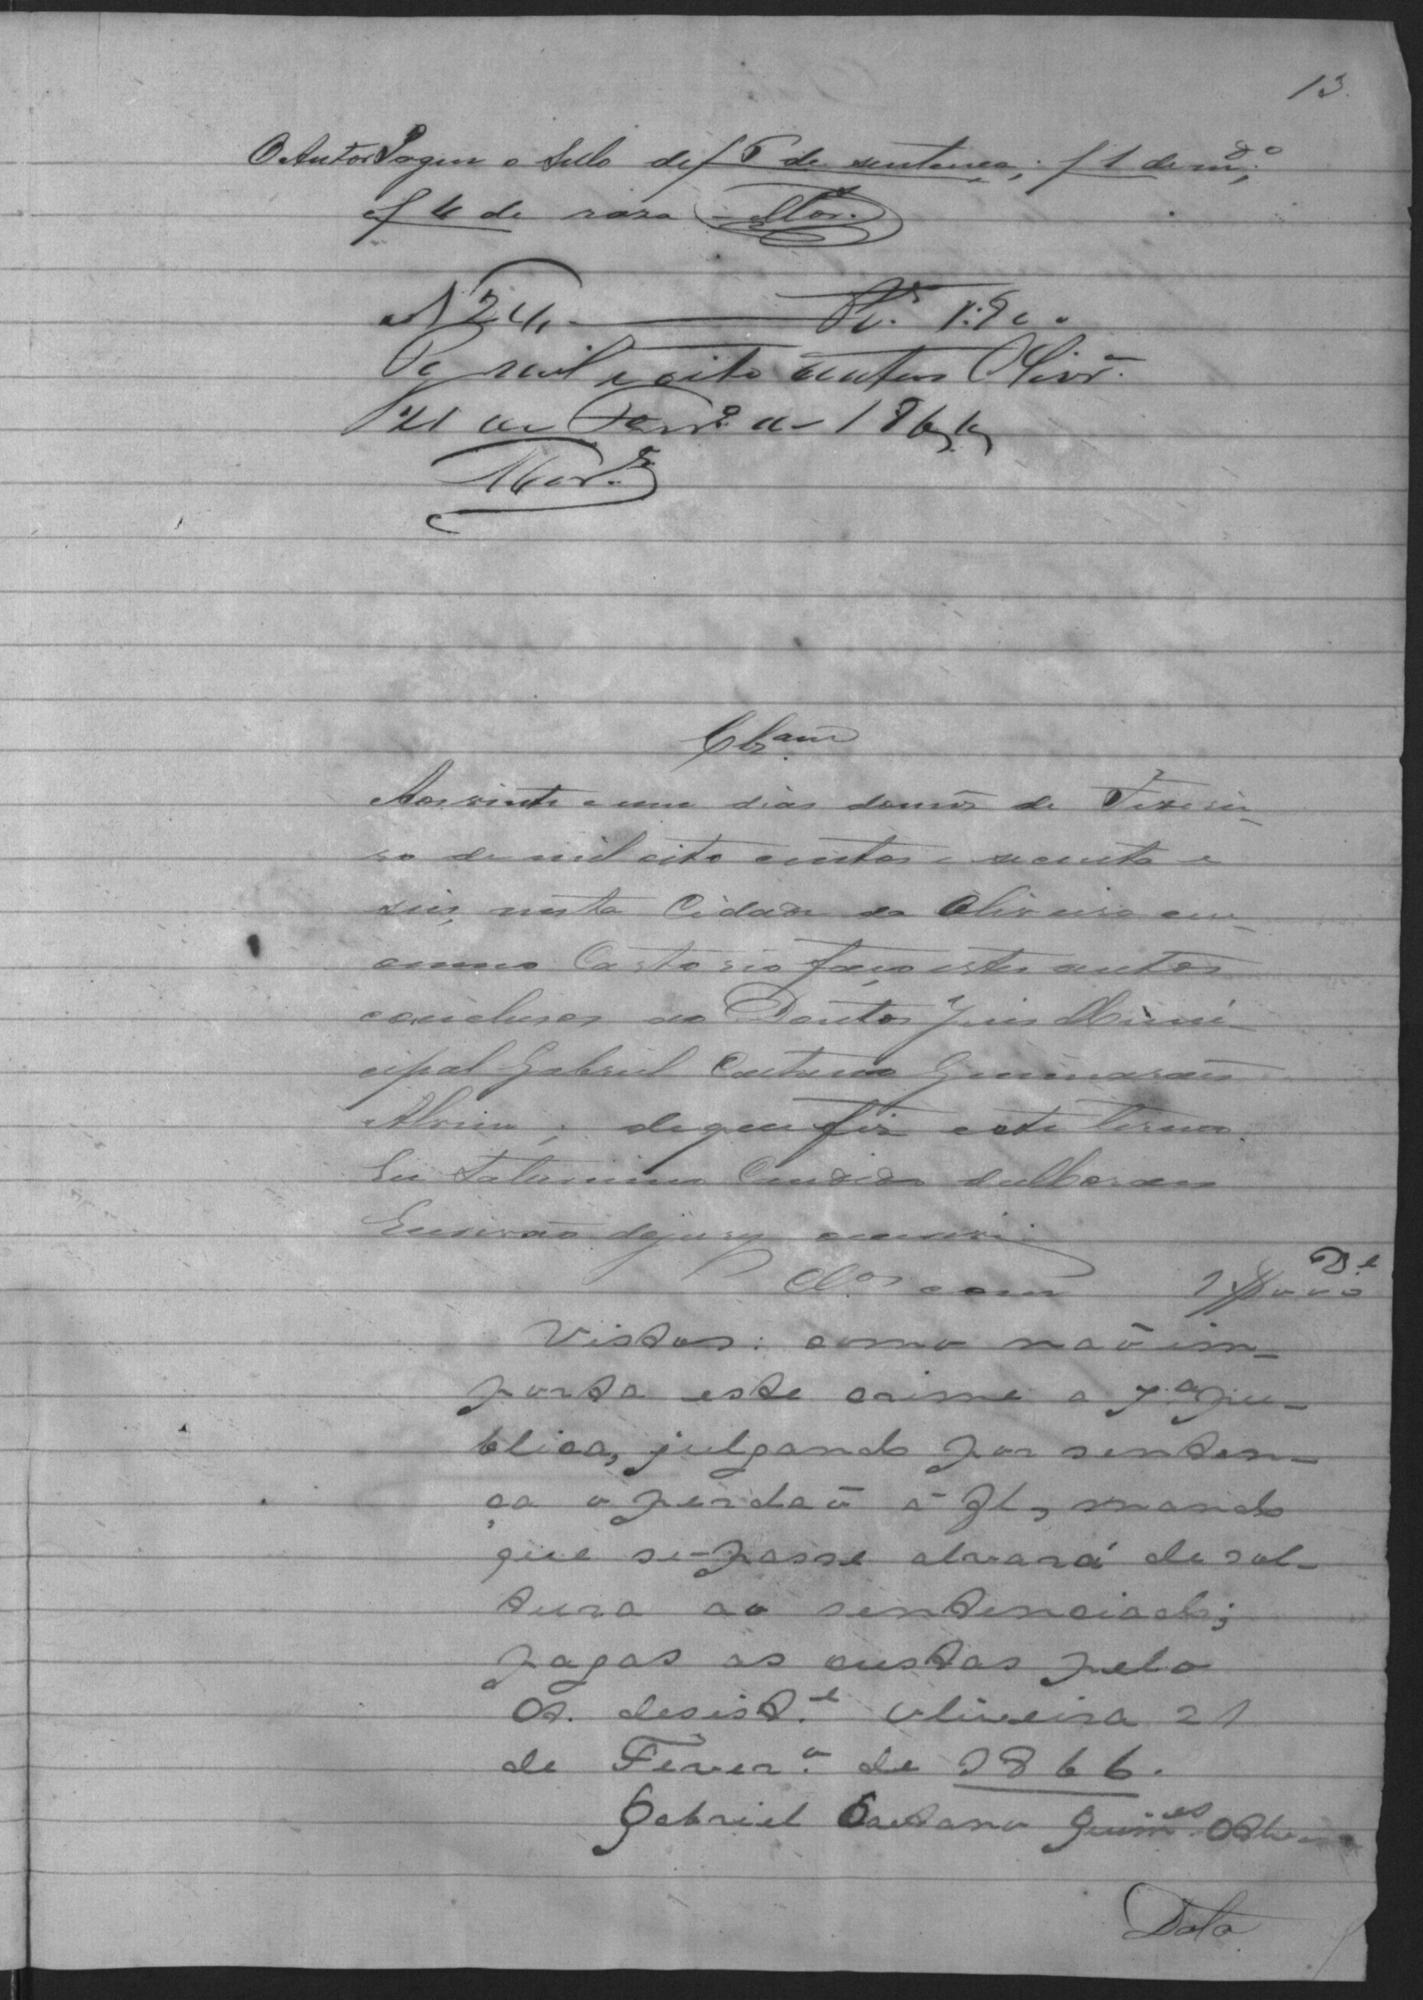 13.
O Autor Pague o Sello de f 5 de sentença; f 1 de m.do;
e f 4 de rasa
N 24 R.s 1:800
Pg mil e oito centos Olivr.ª
21 de Fevr.º de 1866
Clz.am
Aos vinte e um dias do mes de Feverei-
ro de mil oito centos e secenta e
seis, nesta Cidade da Oliveira em
o meo Cartorio faço estes autos
conclusos ao Doutor Juis Muni-
cipal Gabriel Caetano Guimarães
Alvim; de que fiz este termo.
Eu Candido
Escrivão do jury escrevi
Cl.os com
Vistos: como não im-
porta este crime a j.ª pu-
blica, julgando por senten-
ça o perdão á fl, mando
que se passe alvará de sol-
tura ao sentenciado;
pagas as custas pelo
A. desist.e Oliveira 21
de Fever.º de 1866.
Gabriel Caetano Guim.es Alvim
Data